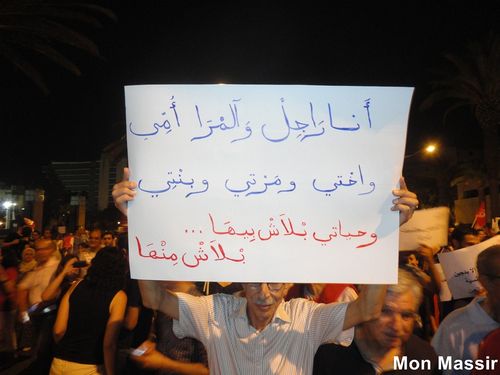 أنا رَاجِلْ وَآلْمْرَا أُمِّي
وأختي ومَرْتِي وبِنْتِي
وحياتي بْلَاشْ بِيهَا...
بْلَاشْ مِنْهَا
Mon Massir